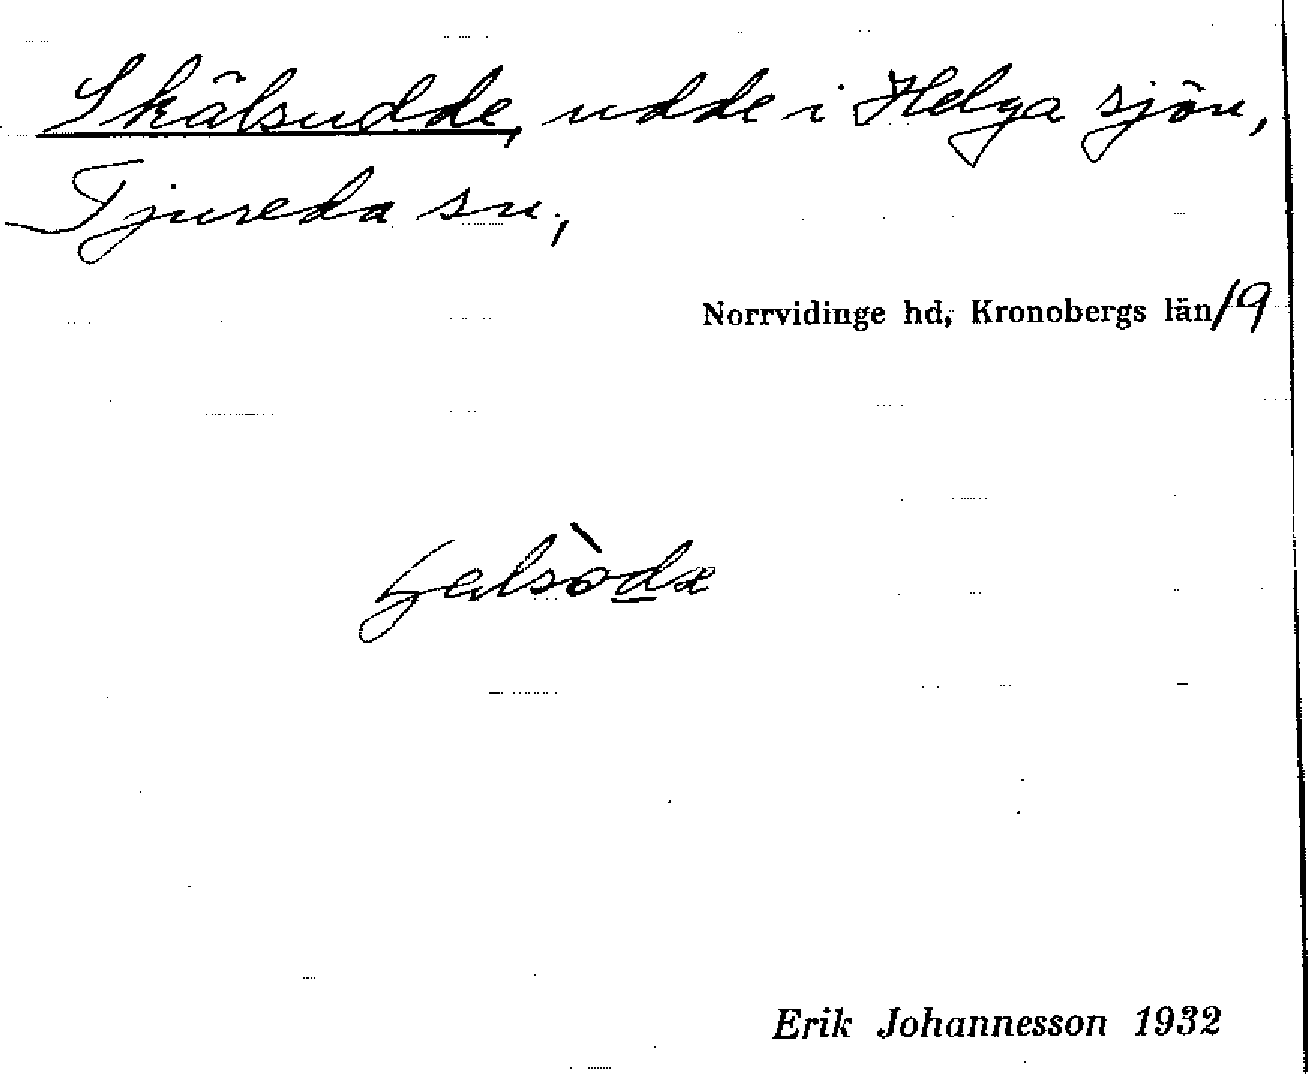 Skälsudde, udde i Helga sjön,
Tjureda sn,
Norrvidinge hd, Kronobergs län/9
Erik Johannesson 1932